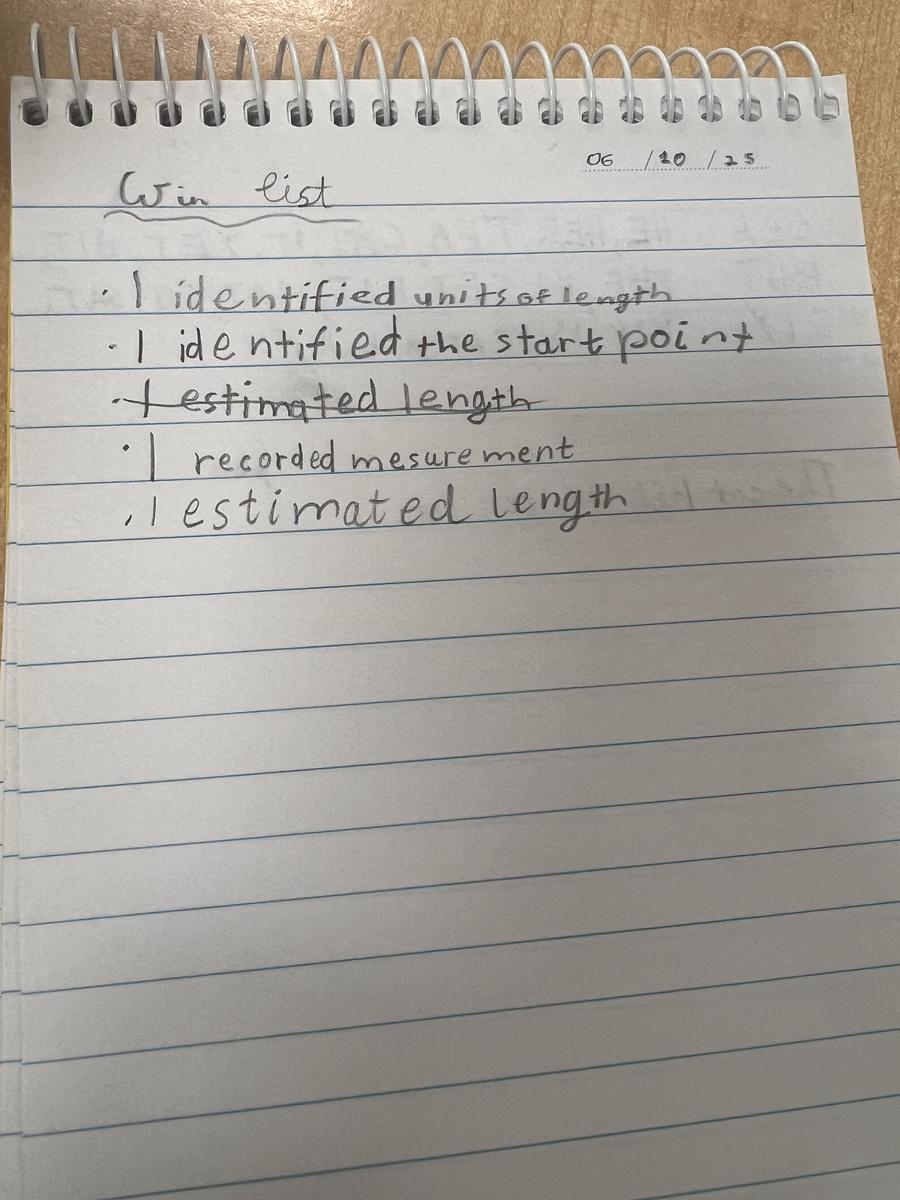 06 / 10 / 25
Win list
· I identified units of length
· I identified the start point
· I estimated length
· I recorded mesurement
. I estimated length